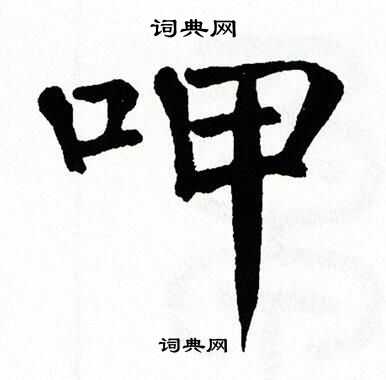 词典网
呷
词典网